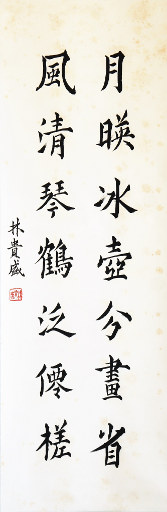 月暎冰壺分畫省
風清琴鶴泛僊槎
林貴盛